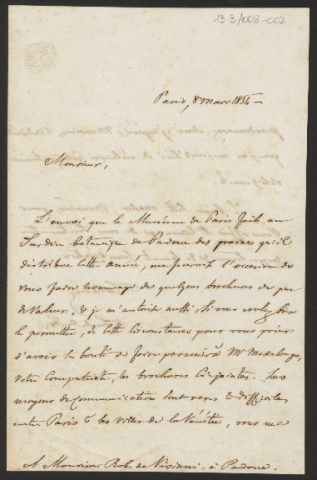 13.3/008-002
Paris, 8 mars 1856 —
Monsieur,
L'envoi que le Muséum de Paris fait au
Jardin botanique de Padoue des graines qu'il
distribue cette année, me fournit l'occasion de
vous faire hommage de quelques brochures de peu
de valeur, & je m'autorise aussi, si vous voulez bien
le permettre, de cette circonstance pour vous prier
d'avoir la bonté de faire parvenir à Mr
votre compatriote, les brochures ci-jointes. Les
moyens de communication sont rares & difficiles
entre Paris & les villes de la Vénétie, vous me
A Monsieur Rob. de Visiani, à Padoue.